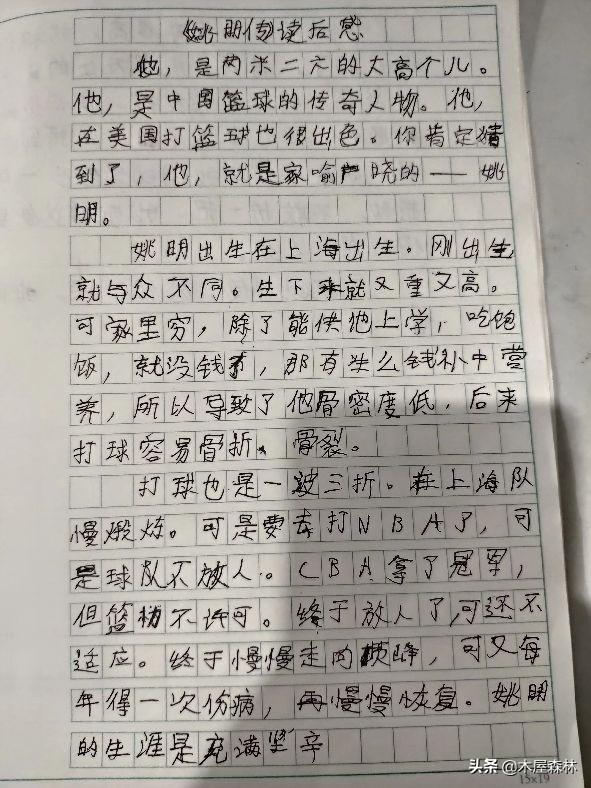 《姚明传》读后感
他，是两米二六的大高个儿。
他，是中国篮球的传奇人物。他，
在美国打篮球也很出色。你肯定猜
到了，他，就是家喻户晓的——姚
明。
姚明出生在上海出生。刚出生，
就与众不同。生下来就又重又高。
可家里穷，除了能供他上学，吃饱
饭，就没钱了，那有什么钱补中营
养，所以导致了他骨密度低，后来
打球容易骨折、骨裂。
打球也是一波三折。在上海队
慢煅炼。可是要去打NBA了，可
是球队不放人。CBA拿了冠军，
但篮协不许可。终于放人了，可还不
适应。终于慢慢走向巅峰，可又每
年得一次伤病，再慢慢恢复。姚明
的生涯是充满坚辛
头条 @木屋森林
15x19